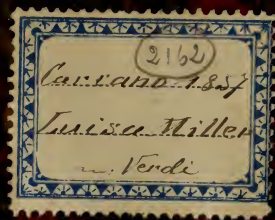 2162
Cariano 1857
Luisa Miller
Verdi